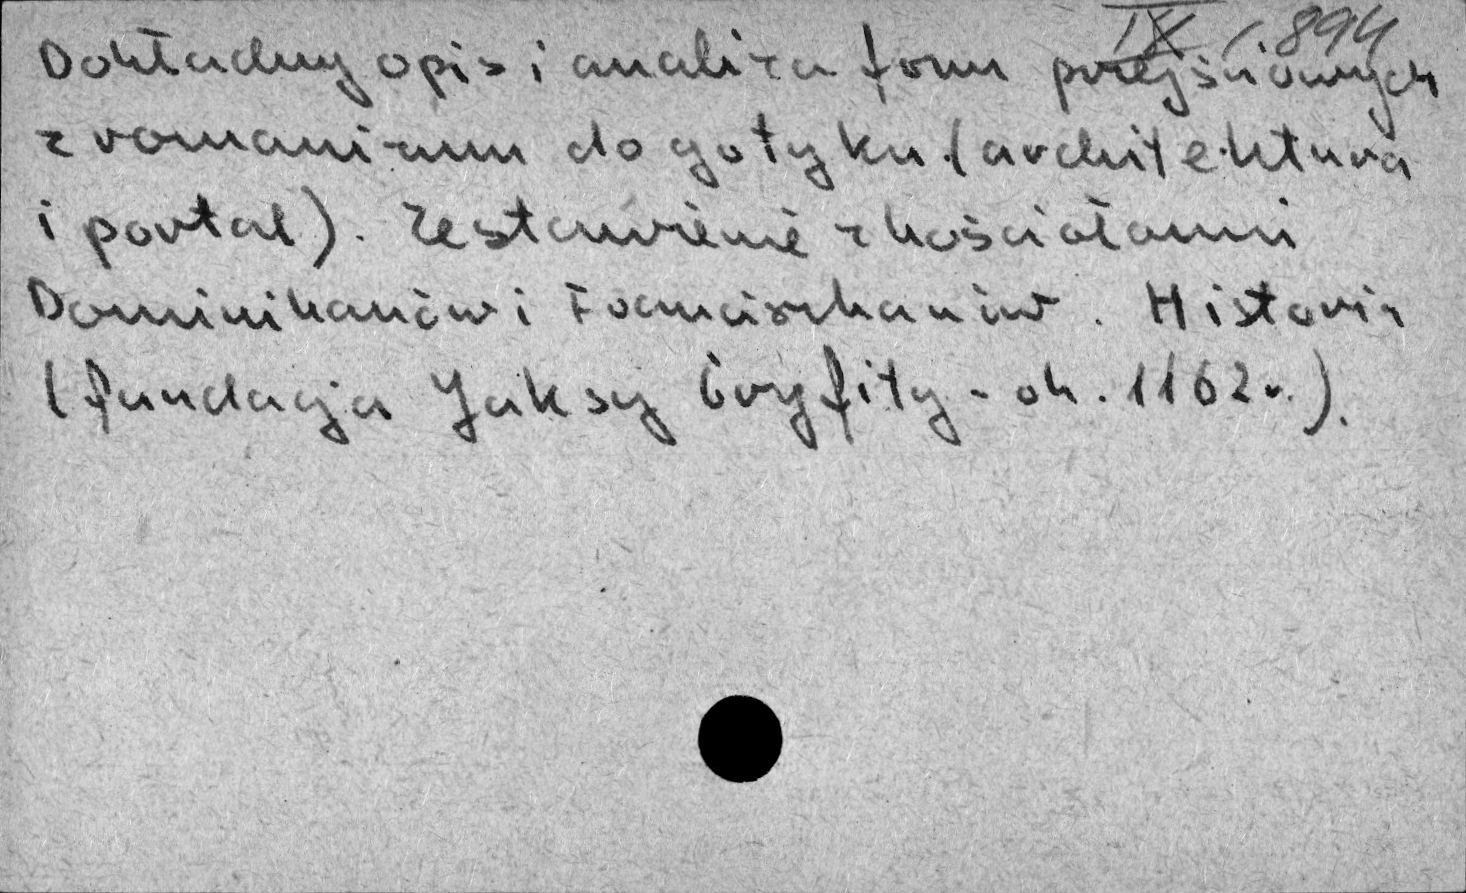 IX 1.894
Dokładny opis i analiza form przejściowych
z romanizmu do gotyku (architektura
i portal). Zestawienie z kościołami
Dominikanów i Franciszkanów. Historia
(fundacja Jaksy Gryfity - ok. 1162 r.).